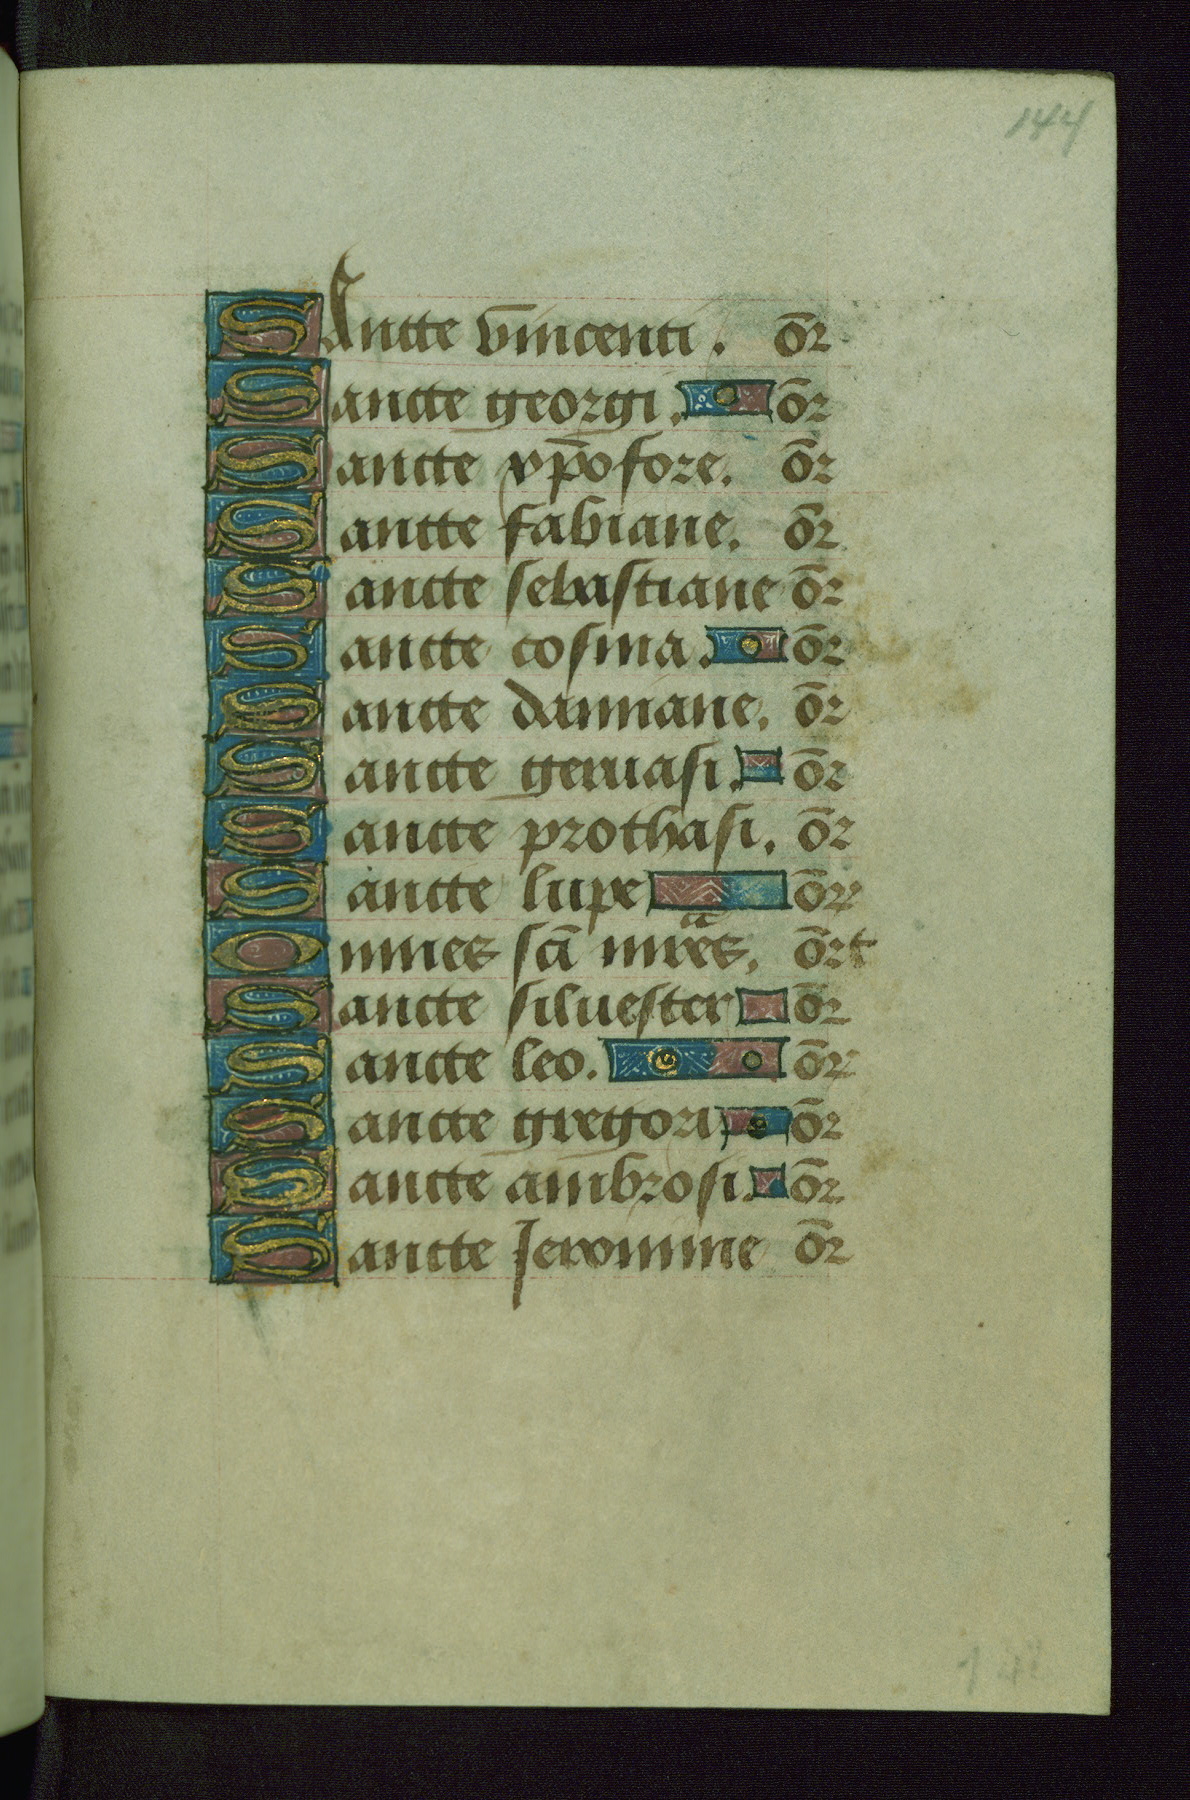 144
SAncte vincenti. or̄
Sancte georgi. or̄
Sancte xp̄ofore. or̄
Sancte fabiane. or̄
Sancte sebastiane or̄
Sancte cosma. or̄
Sancte damiane. or̄
Sancte geruasi. or̄
Sancte prothasi. or̄
Sancte lupe or̄
Omnes sc̄i mr̄es. or̄t
Sancte siluester or̄
Sancte leo. or̄
Sancte gregori or̄
Sancte ambrosi. or̄
Sancte Jeronime or̄